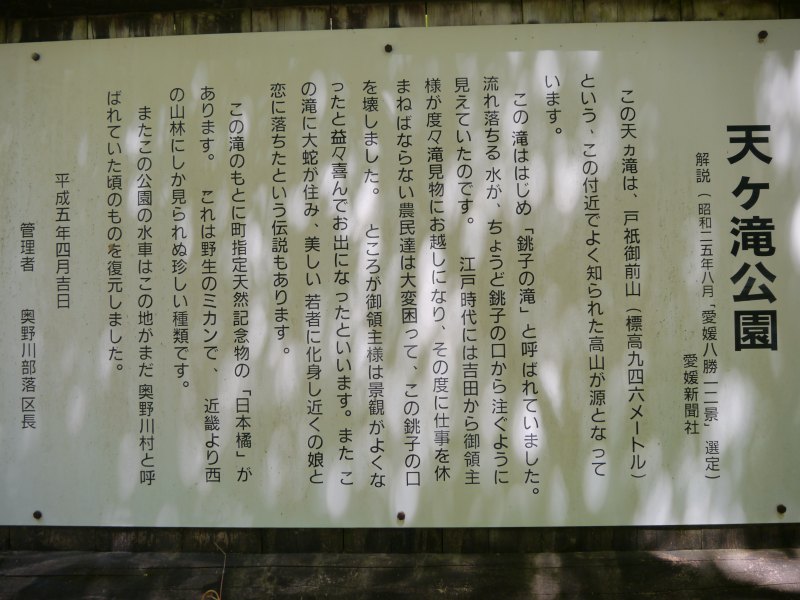 天ヶ滝公園
解説（昭和二五年八月「愛媛八勝一二景」選定）
愛媛新聞社
この天ヵ滝は、戸祇御前山（標高九四六メートル）
という、この付近でよく知られた高山が源となって
います。
この滝ははじめ「銚子の滝」と呼ばれていました。
流れ落ちる水が、ちょうど銚子の口から注ぐように
見えていたのです。江戸時代には吉田から御領主
様が度々滝見物にお越しになり、その度に仕事を休
まねばならない農民達は大変困って、この銚子の口
を壊しました。ところが御領主様は景観がよくな
ったと益々喜んでお出になったといいます。またこ
の滝に大蛇が住み、美しい若者に化身し近くの娘と
恋に落ちたという伝説もあります。
この滝のもとに町指定天然記念物の「日本橘」が
あります。これは野生のミカンで、近畿より西
の山林にしか見られぬ珍しい種類です。
またこの公園の水車はこの地がまだ奥野川村と呼
ばれていた頃のものを復元しました。
平成五年四月吉日
管理者　奥野川部落区長